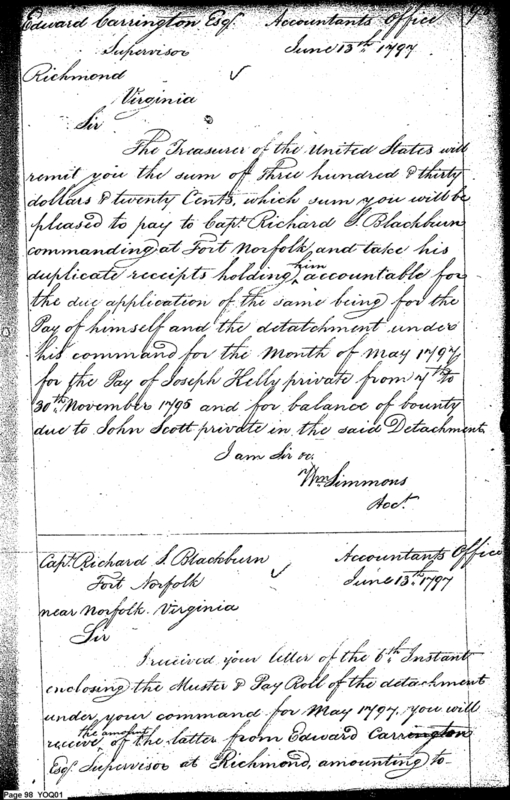 Edward Carrington Esqr. Accountants Office
Supervisor June 13th. 1797
Richmond
Virginia
Sir
The Treasurer of the United States will
remit you the sum of Three hundred & thirty
dollars & twenty Cents, which sum you will be
pleased to pay to Capt. Richard S. Blackburn
commanding at Fort Norfolk, and take his
duplicate receipts holding him accountable for
the due application of the same being for the
Pay of himself and the detatchment under
his command for the Month of May 1797,
for the Pay of Joseph Helly private from 7th to
30th. November 1795 and for balance of bounty
due to John Scott private in the said Detachment
I am Sir &c.
Wm. Simmons
Acct.
Capt. Richard S. Blackburn Accountants Office
Fort Norfolk June 13th. 1797
near Norfolk Virginia
Sir
I received your letter of the 6th. Instant
enclosing the Muster & Pay Roll of the detachment
under your command for May 1797, you will
receive the amount of the latter from Edward Carrington
Esqr. Supervisor at Richmond, amounting to
Page 98 YOQ01